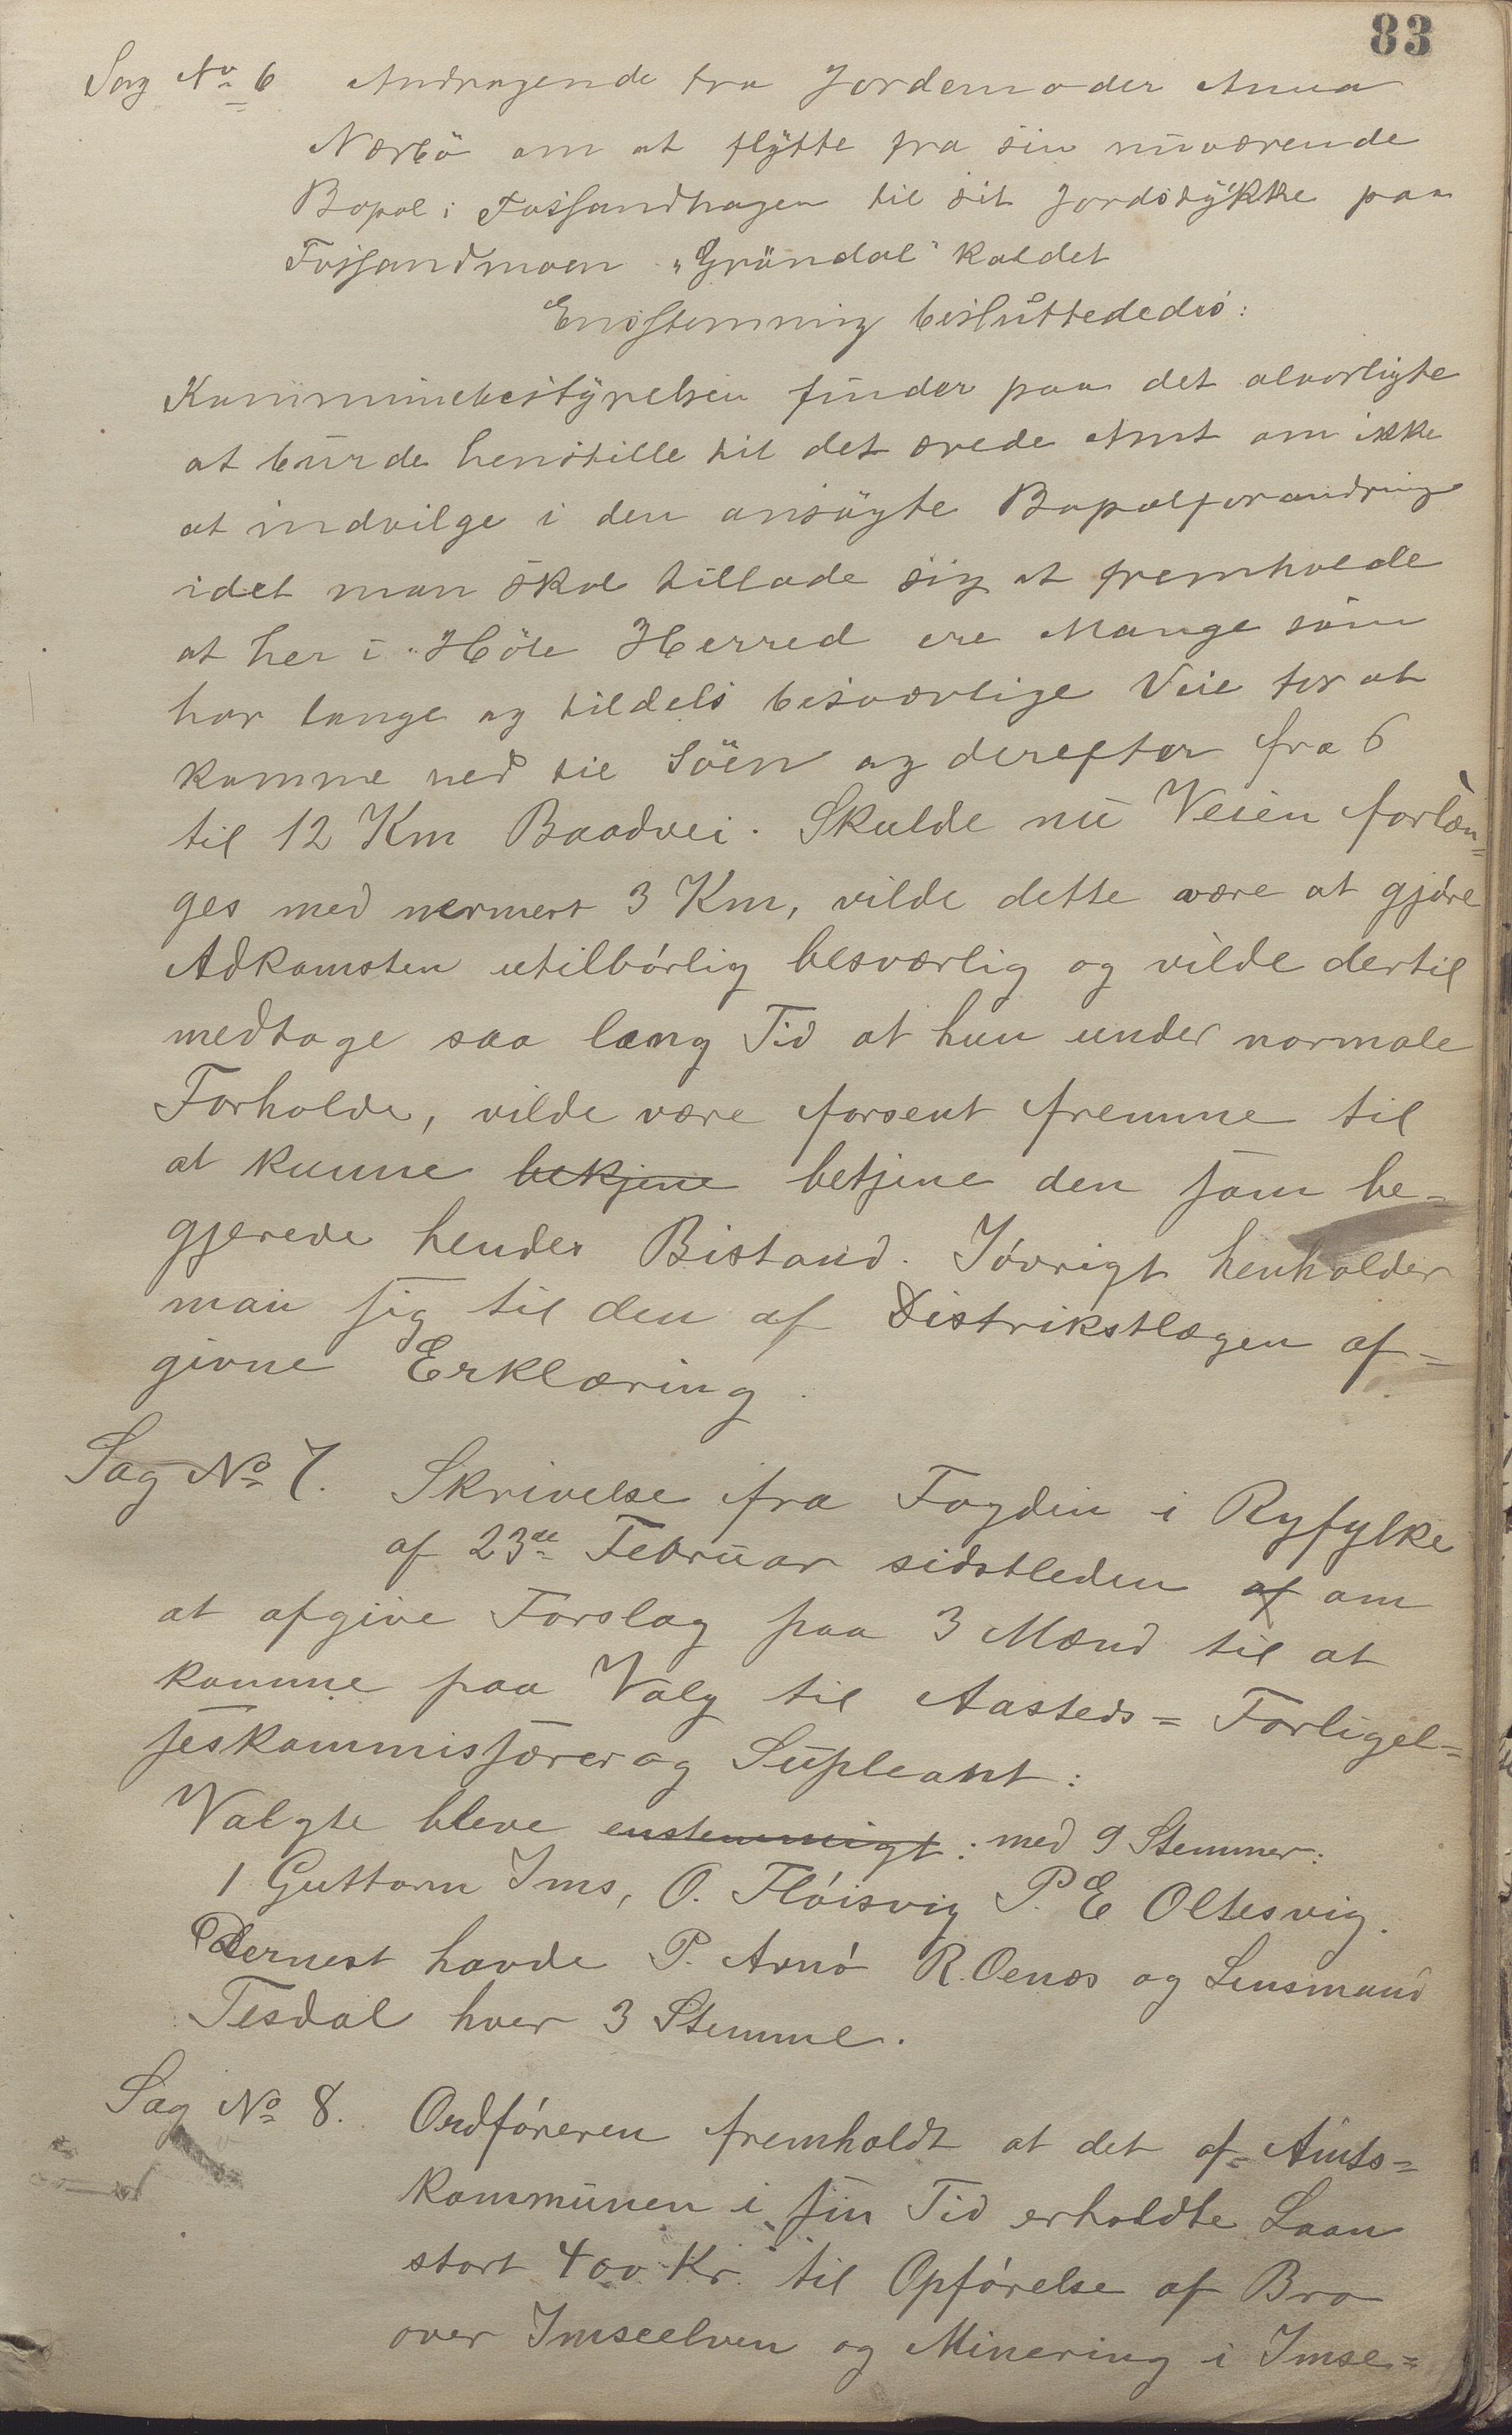 83
Sag No 6 Andragende fra Jordemoder Anna
Nærbö om at flytte fra sin nuværende
Bopæl i Fossandhagen til sit Jordstykke paa
Fossandmoen "Gröndal" kaldet
Enstemmig besluttededes:
Kommunebestyrelsen finder paa det alvorligte
at burde henstille til det ærede Amt om ikke
at indvilge i den ansögte Bopælforandring
idet man skal tillade sig at fremholde
at her i Höle Herred ere Mange som
har lange og tildels besværlige Veie for at
komme ned til Söen og derefter fra 6
til 12 Km Baadvei. Skulde nu Veien forlæn=
ges med nermere 3 Km, vilde dette være at gjóre
Adkomsten utilbórlig besværlig og vilde dertil
medtage saa lang Tid at hun under normale
Forholde, vilde være forsent fremme til
at kunne bekjene betjene den som be=
gjerede hendes Bistand. Jóvrigt henholder
man sig til den af Distriktslægen af=
givne Erklæring.
Sag No 7. Skrivelse fra Fogden i Ryfylke
af 23de Februar sidstleden af om
at afgive Forslag paa 3 Mænd til at
komme paa Valg til Aasteds= Forligel=
seskommissærer og Supleant:
Valgte bleve enstemmigt: med 9 Stemmer:
1 Guttorm Ims, O. Flóisvig P. E Oltesvig.
Dernest havde P. Arnó R. Oenæs og Lensmand
Tesdal hver 3 Stemme.
Sag No 8. Ordfóreren fremholdt at det af Amts=
kommunen i sin Tid erholdte Laan
stort 400 Kr. til Opfórelse af Bro
over Imseelven og Minering i Imse=